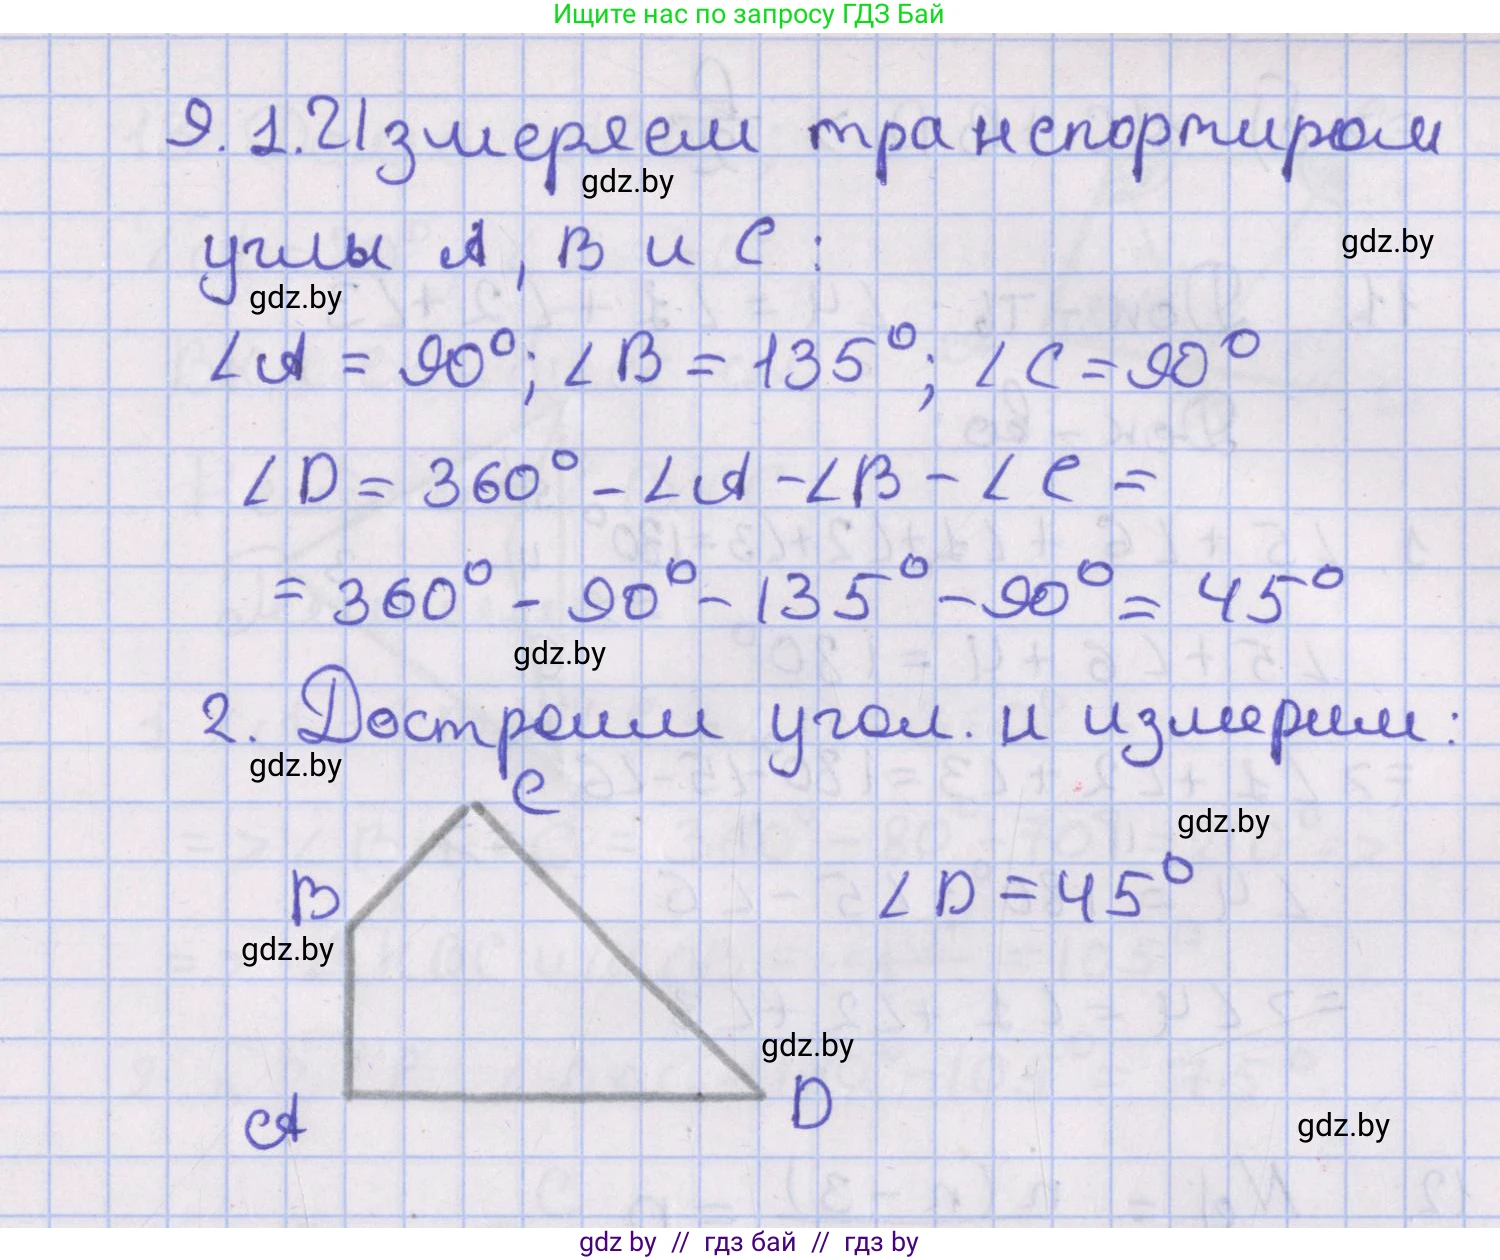 Ищите нас по запросу ГДЗ Бай
9. 1. Измеряем транспортиром
gdz.by
углы A, B и C :
gdz.by
gdz.by
∠A = 90°; ∠B = 135°; ∠C = 90°
∠D = 360° - ∠A - ∠B - ∠C =
= 360° - 90° - 135° - 90° = 45°
gdz.by
2. Достроим угол. и измерим :
gdz.by
C
gdz.by
B
∠D = 45°
gdz.by
gdz.by
A
D
gdz.by
gdz by // гдз бай // гдз by